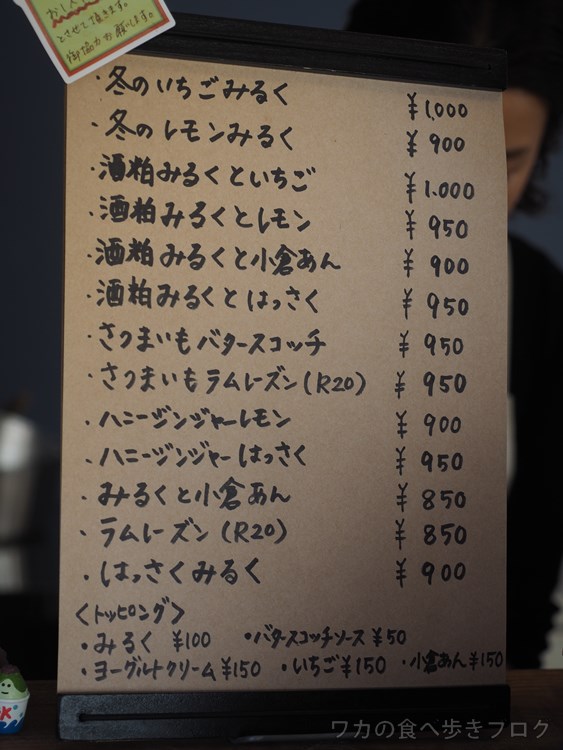 とさせて頂きます。
御協力お願いします。
・冬のいちごみるく ¥1,000
・冬のレモンみるく ¥900
・酒粕みるくといちご ¥1,000
・酒粕みるくとレモン ¥950
・酒粕みるくと小倉あん ¥900
・酒粕みるくとはっさく ¥950
・さつまいもバタースコッチ ¥950
・さつまいもラムレーズン(R20) ¥950
・ハニージンジャーレモン ¥900
・ハニージンジャーはっさく ¥950
・みるくと小倉あん ¥850
・ラムレーズン(R20) ¥850
・はっさくみるく ¥900
〈トッピング〉
・みるく ¥100 ・バタースコッチソース ¥50
・ヨーグルトクリーム¥150 ・いちご¥150 ・小倉あん¥150
ワカの食べ歩きブログ